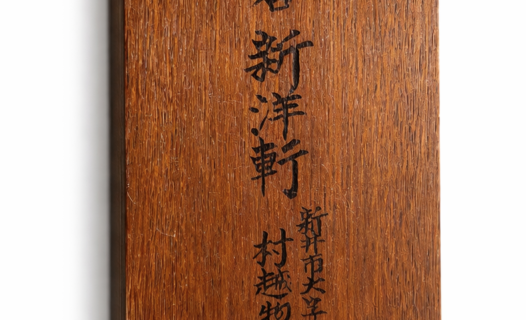 新洋軒
新井市大
村越